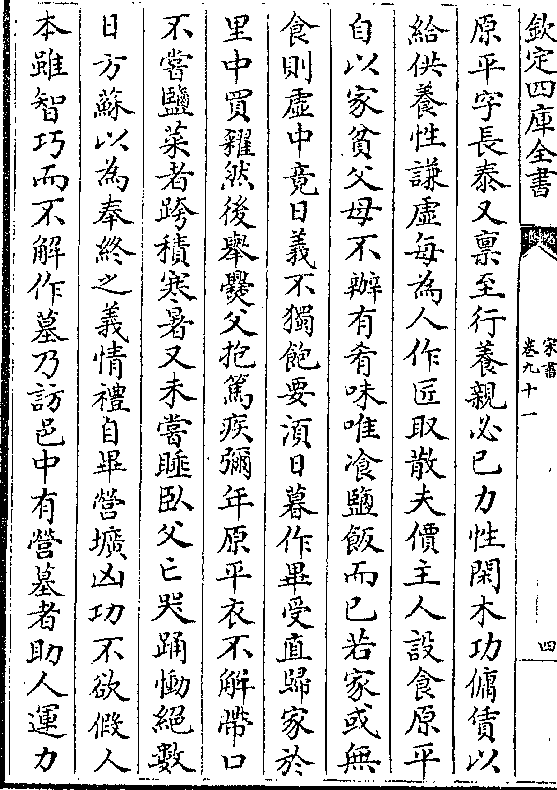 欽定四庫全書
宋書
卷九十一
四
原平字長泰又稟至行養親必己力性閑木功傭賃以
給供養性謙虛每為人作匠取散夫價主人設食原平
自以家貧父母不辦有肴味唯飡鹽飯而已若家或無
食則虛中竟日義不獨飽要湏日暮作畢受直歸家於
里中買糴然後舉爨父抱篤疾彌年原平衣不解帶口
不嘗鹽菜者跨積寒暑又未嘗睡臥父亡哭踊慟絕數
日方蘇以為奉終之義情禮自畢營壙凶功不欲假人
本雖智巧而不解作墓乃訪邑中有營墓者助人運力